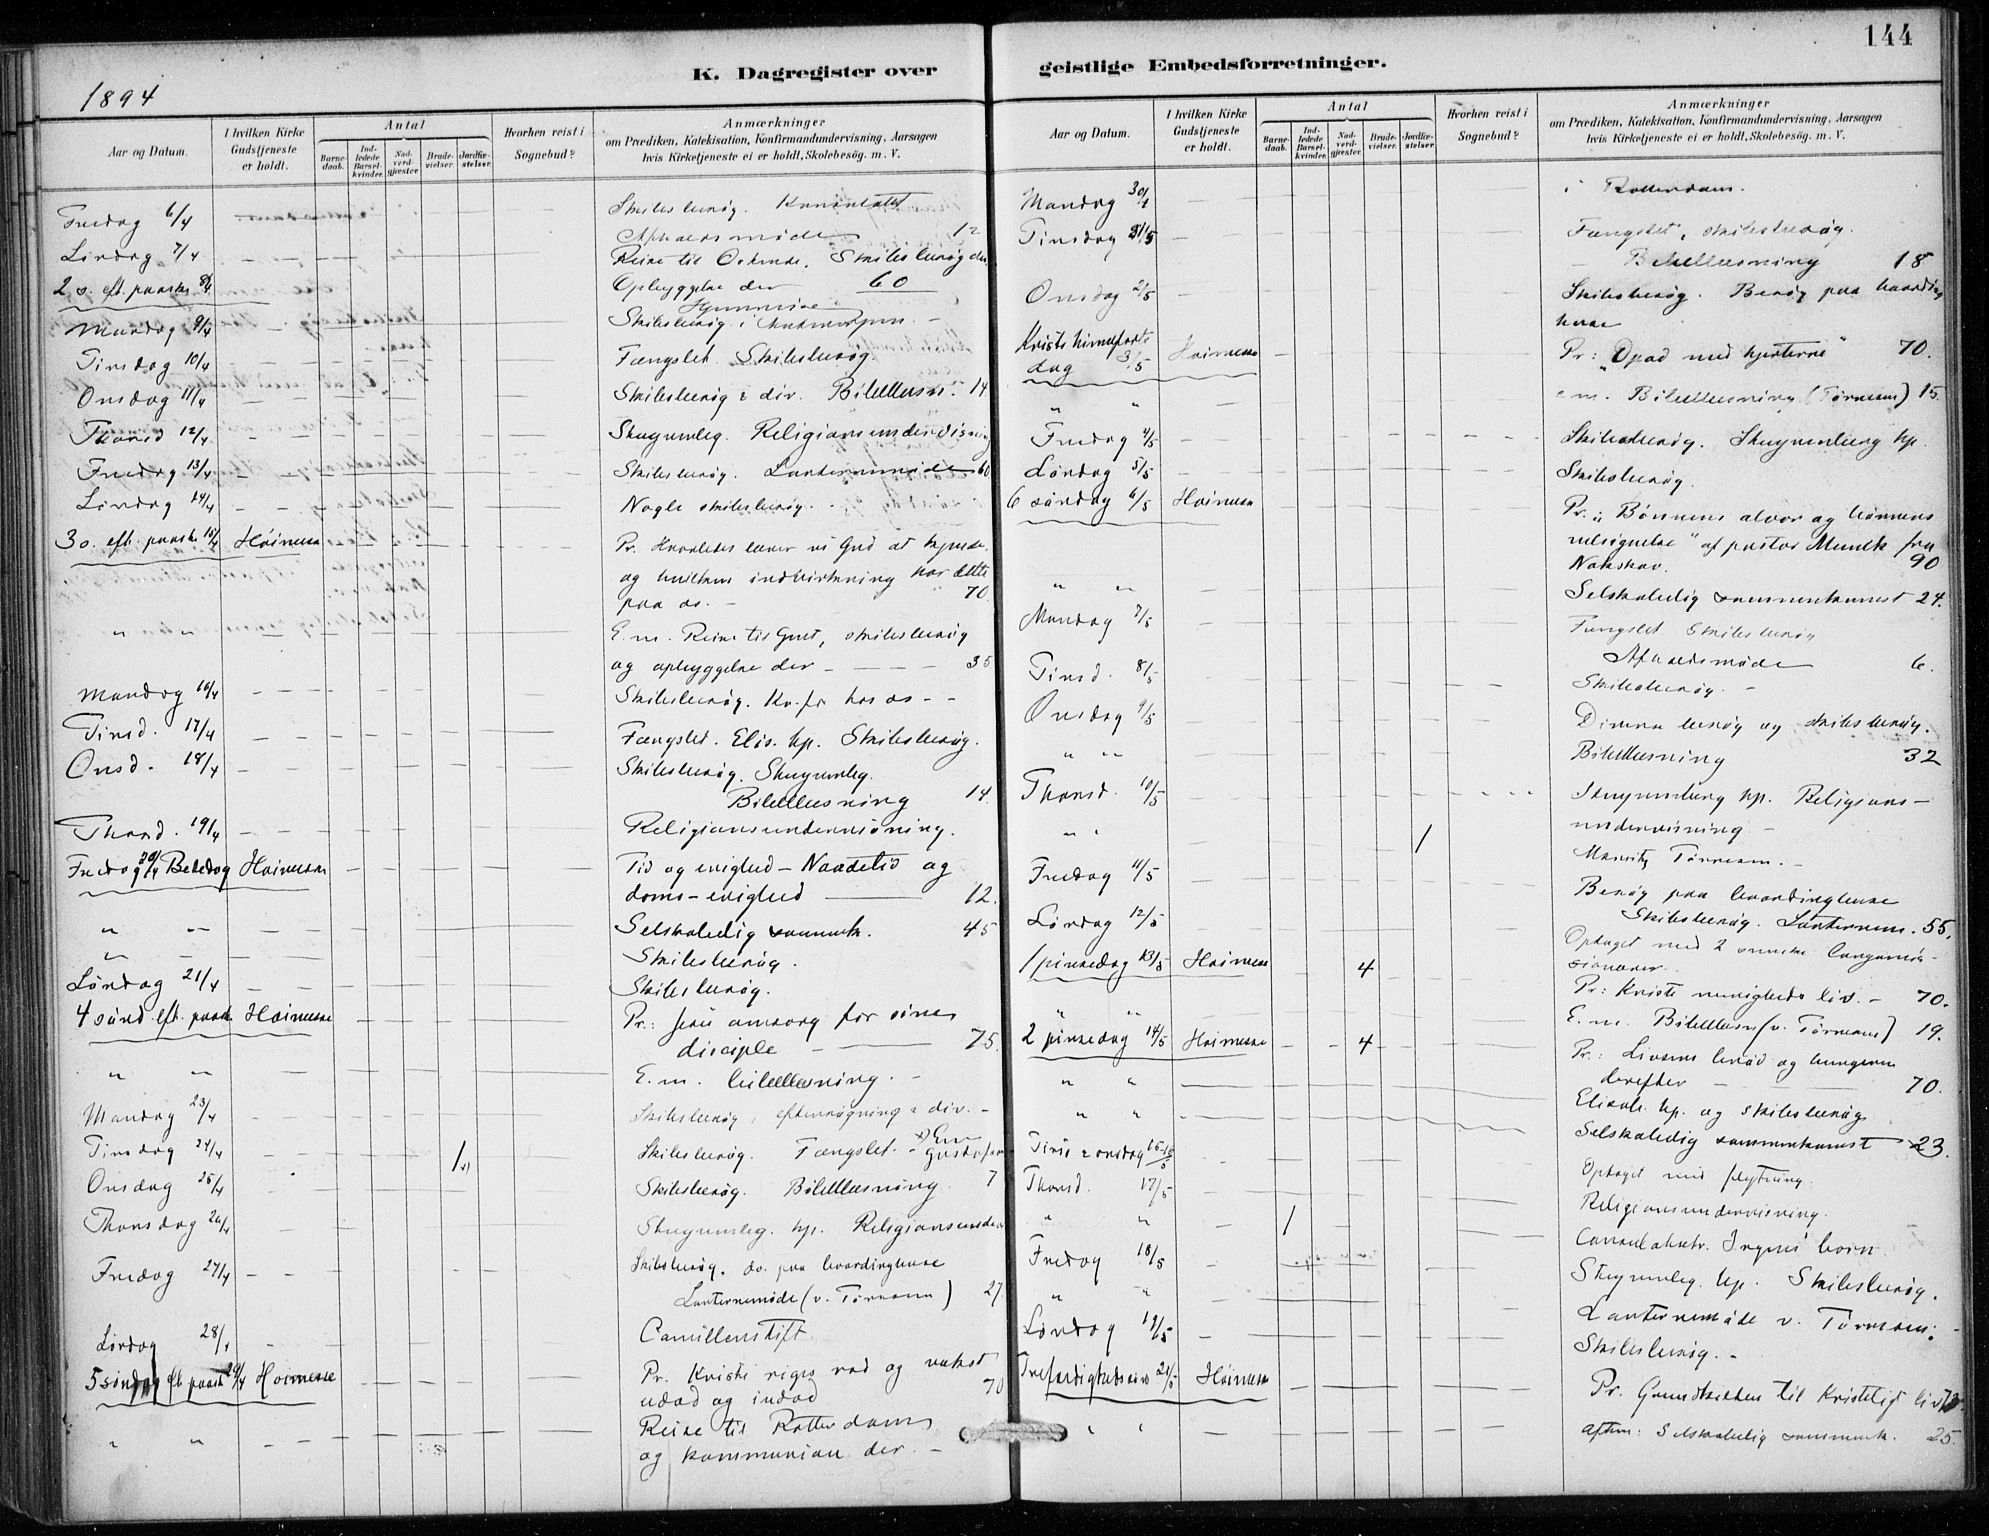 144
K. Dagregister over
geistlige Embedsforretninger.
1894
Aar og Datum.
I hvilken Kirke Gudstjeneste er holdt.
Antal
Barnedaab.
Indledede Barselkvinder.
Nadverdgjæster
Brudevielser.
Jordfæstelser.
Hvorhen reist i Sognebud?
Anmærkninger
om Prædiken, Katekisation, Konfirmandundervisning, Aarsagen
hvis Kirketjeneste ei er holdt, Skolebesög. m. V.
Fredag 6/4 Skibsbesøg. Konsulatet
Afholdsmøde 12
Lørdag 7/4 Reise til Ostende. Skibsbesøg der.
2 s. eft. paaske 8/4 Opbyggelse der 60
Hjemreise
Mandag 9/4 Skibsbesøg i Antwerpen
Tirsdag 10/4 Fængslet. Skibsbesøg
Onsdag 11/4 Skibsbesøg & div. Bibellæsn. 14
Thorsd 12/4 Stuyvenbg. Religionsundervisning
Fredag 13/4 Skibsbesøg. Lanternemøde 60
Lørdag 14/4 Nogle skibsbesøg.
3 s. eft. paaske 15/4 Høimesse Pr. Hvorledes lærer vi Gud at kjende,
og hvilken indvirkning har dette
paa os. 70
" " E.m. Reise til Gent, skibsbesøg
og opbyggelse der 35
Mandag 16/4 Skibsbesøg. Kv.for. hos os
Tirsd. 17/4 Fængslet. Elis. hp. Skibsbesøg.
Onsd. 18/4 Skibsbesøg. Stuyvenbg.
Bibellæsning 14.
Thorsd. 19/4 Religionsundervisning.
Fredag 20/4 Bededag Høimesse Tid og evighed – Naadetid og
doms-evighed 12.
" " Selskabelig sammenk. 45
" " Skibsbesøg.
Lørdag 21/4 Skibsbesøg.
4 sönd. eft. paask. Høimesse Pr.: Jesu omsorg for sine
disciple 75.
" " E.m. bibellæsning.
Mandag 23/4 Skibsbesøg, eftersøgning & div.
Tirsdag 24/4 1 x) Skibsbesøg. Fængslet. x) Em Gustafson
Onsdag 25/4 Skibsbesøg. Bibellæsning. 7
Thorsdag 26/4 Stuyvenbg. hp. Religionsunder
Fredag 27/4 Skibsbesøg. do. paa boardinghuse
Lanternemøde (v. Tørnesen) 27
Lørdag 28/4 Camillenstift.
5 söndag eft paask 29/4 Høimesse Pr. Kristi riges rod og vækst
udad og indad 70
" " Reise til Rotterdam
og kommunion der.
Aar og Datum.
I hvilken Kirke Gudstjeneste er holdt.
Antal
Barnedaab.
Indledede Barselkvinder.
Nadverdgjæster
Brudevielser.
Jordfæstelser.
Hvorhen reist i Sognebud?
Anmærkninger
om Prædiken, Katekisation, Konfirmandundervisning, Aarsagen
hvis Kirketjeneste ei er holdt, Skolebesög. m. V.
Mandag 30/4 i Rotterdam.
Tirsdag 1/5 Fængslet, skibsbesøg.
Bibellæsning 18
Onsdag 2/5 Skibsbesøg. Besøg paa boarding
huse
Kristi himmelfarts
dag 3/5 Høimesse Pr: "Opad med hjerterne" 70.
" " e.m. Bibellæsning (Tørnesen) 15.
Fredag 4/5 Skibsbesøg. Stuyvenberg hp.
Lørdag 5/5 Skibsbesøg.
6 söndag 6/5 Høimesse Pr. "Bønnens alvor og bønnens
velsignelse" af pastor Munck fra
Nakskov. 90
" " Selskabelig sammenkomst 24.
Mandag 7/5 Fængslet Skibsbesøg
Afholdsmøde 6.
Tirsd. 8/5 Skibsbesøg.
Onsdag 9/5 Diverse besøg og skibsbesøg.
" " Bibellæsning 32
Thorsd. 10/5 Stuyvenberg hp. Religions-
undervisning.
" " 1 Tørnesen.
Fredag 11/5 Besøg paa boardinghuse
Skibsbesøg. Lanternem. 55.
Lørdag 12/5 Optaget med 2 svenske Congomis-
sionærer.
1 pinsedag 13/5 Høimesse 4 Pr: Kristi menigheds liv. 70.
" " E.m. Bibellæsn (v. Tørnesen) 19.
2 pinsedag 14/5 Høimesse 4 Pr: Livsens brød og hungeren
derefter 70.
" " Elisab. hp. og skibsbesøg
" " Selskabelig sammenkomst 23.
Tirsd & onsdag 15-16/5 Optaget med flytning.
Thorsd. 17/5 Religionsundervisning.
" " 1
Fredag 18/5 Stuyvenbg. hp. Skibsbesøg.
" " Lanternemøde v. Tørnesen.
Lørdag 19/5 Skibsbesøg.
Trefoldighedssönd 20/5 Høimesse Pr. Grundkilden til kristeligt liv
" " Aftm: Selskabelig sammenk. 25.